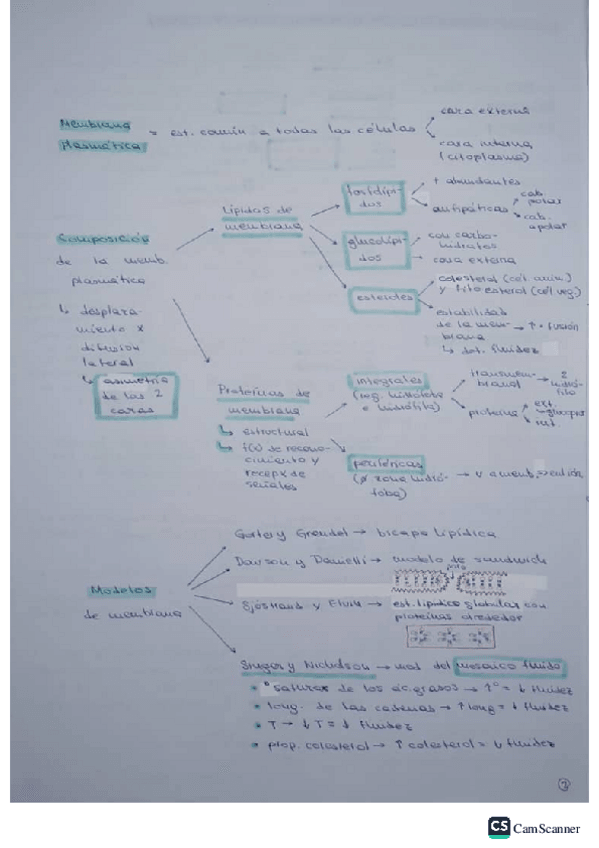 Membrana plasmática = est. común a todas las células
cara externa
cara interna
(citoplasma)
Composición
de la memb.
plasmática
↳ desplaza-
miento x
difusión
lateral
↳ asimetría
de las 2
caras
Lípidos de
membrana
fosfolípi-
dos
+ abundantes
anfipáticas
cab. polar
cab. apolar
glucolípi-
dos
con carbo-
hidratos
cara externa
esteroles
colesterol (cél. anim.)
y fitoesterol (cél. veg.)
estabilidad
de la mem-
brana → ↑ fusión
↳ det. fluidez
Proteínas de
membrana
↳ estructural
↳ f(x) de recono-
cimiento y
recepx de
señales
integrales
(reg. hidrófoba
e hidrófila)
transmem-
brana
proteína
ext.
int.
periféricas
(∅ zona hidró-
foba)
Modelos
de membrana
Gorter y Grendel → bicapa lipídica
Dawson y Danielli → modelo de sandwich
→ est. lipídica globular con
proteínas alrededor
Singer y Nicholson → mod. del mosaico fluido
• °satur de los ác. grasos → ↑° = ↓ fluidez
• long. de las cadenas → ↑ long = ↓ fluidez
• T → ↓ T = ↓ fluidez
• prop. colesterol → ↑ colesterol = ↓ fluidez
CS CamScanner